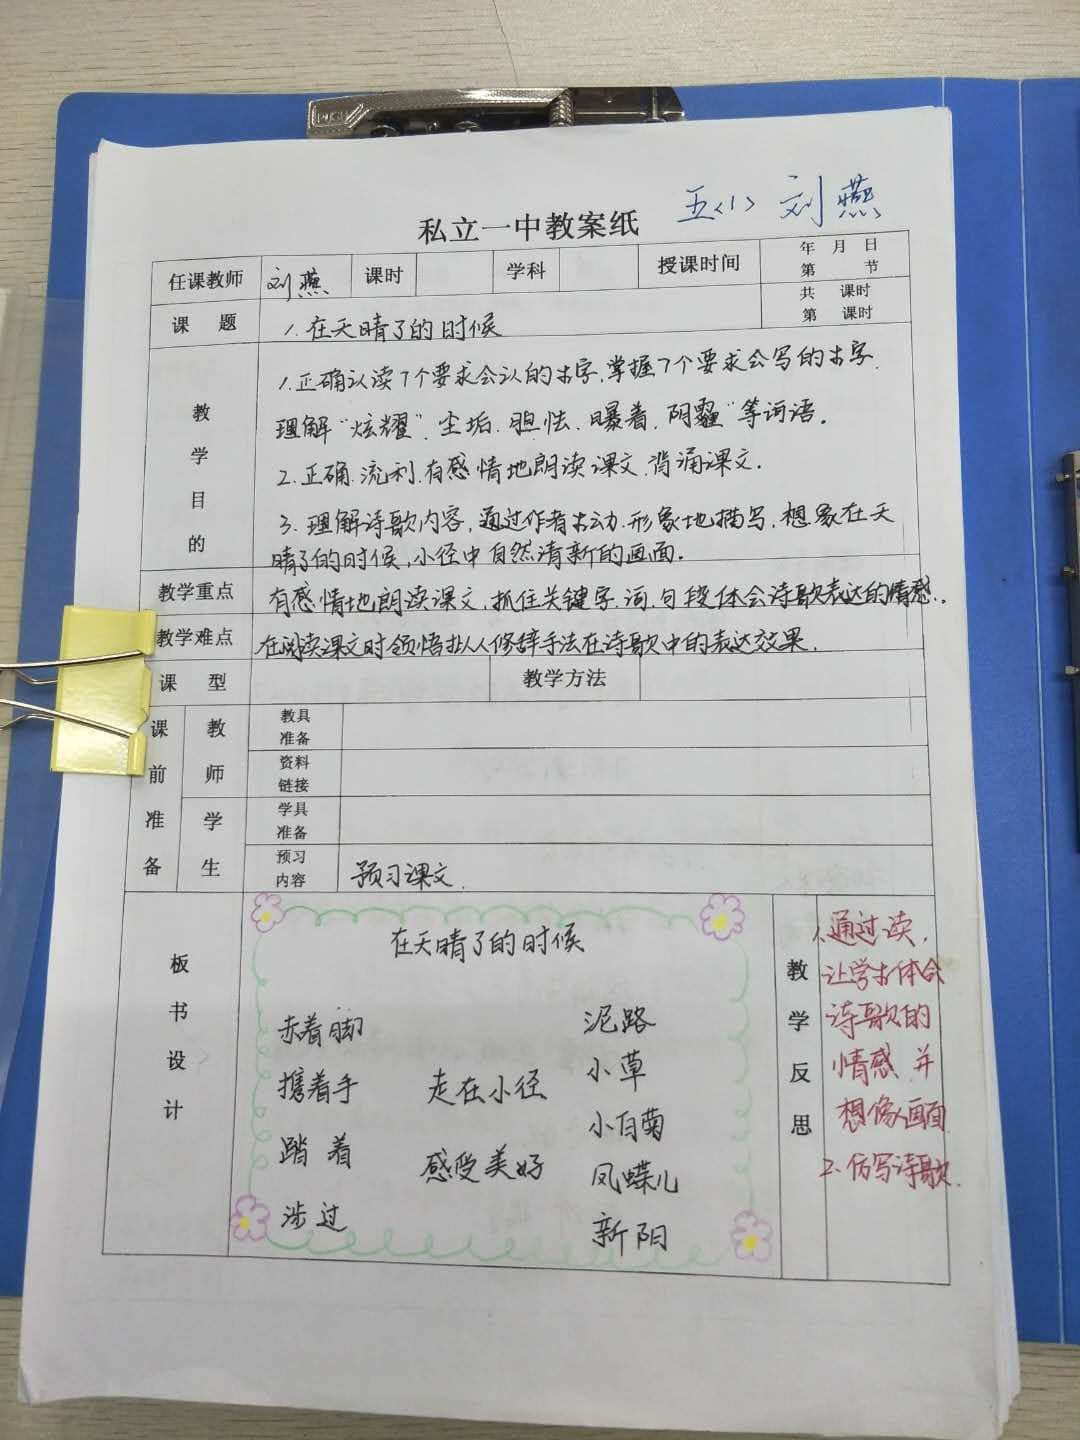 五<1> 刘燕
私立一中教案纸
任课教师 刘燕 课时 学科 授课时间 年 月 日
第 节
课 题 1.在天晴了的时候 共 课时
第 课时
教学目的
1.正确认读7个要求会认的生字,掌握7个要求会写的生字.
理解"炫耀、尘垢、胆怯、曝着、阴霾"等词语。
2.正确.流利.有感情地朗读课文.背诵课文.
3.理解诗歌内容,通过作者生动.形象地描写,想象在天
晴了的时候,小径中自然清新的画面.
教学重点 有感情地朗读课文.抓住关键字.词.句段体会诗歌表达的情感.
教学难点 在阅读课文时领悟拟人修辞手法在诗歌中的表达效果.
课 型 教学方法
课前准备
教师
教具
准备
资料
链接
学生
学具
准备
预习
内容 预习课文.
板书设计
在天晴了的时候
赤着脚 泥路
携着手 走在小径 小草
踏着 小白菊
感受美好 凤蝶儿
涉过 新阳
教学反思
1.通过读,
让学生体会
诗歌的
情感.并
想像画面
2.仿写诗歌.